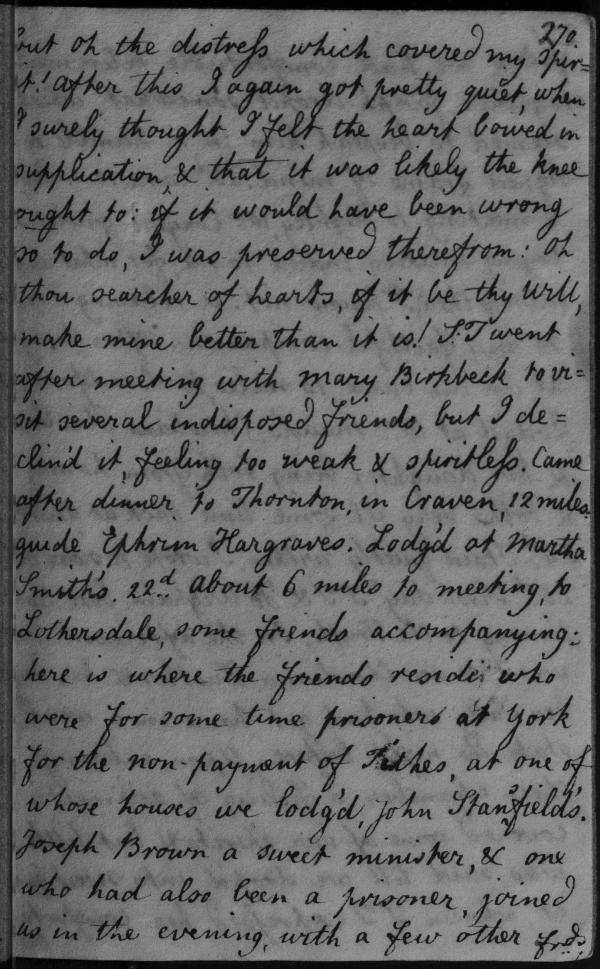 270.
but oh the distress which covered my spir=
it! after this I again got pretty quiet, when
I surely thought I felt the heart bowed in
supplication, & that it was likely the knee
ought to: if it would have been wrong
so to do, I was preserved therefrom: oh
thou searcher of hearts, if it be thy Will,
make mine better than it is! S:T went
after meeting with Mary Birkbeck to vi=
sit several indisposed friends, but I de=
clin'd it, feeling too weak & spiritless. Came
after dinner to Thornton, in Craven, 12 miles.
guide Ephrim Hargraves. Lodg'd at Martha
Smith's. 22d. about 6 miles to meeting, to
Lothersdale, some friends accompanying:
here is where the friends reside, who
were for some time prisoners at York
for the non-payment of Tithes, at one of
whose houses we lodg'd, John Stansfield's.
Joseph Brown a sweet minister, & one
who had also been a prisoner, joined
us in the evening, with a few other frds;